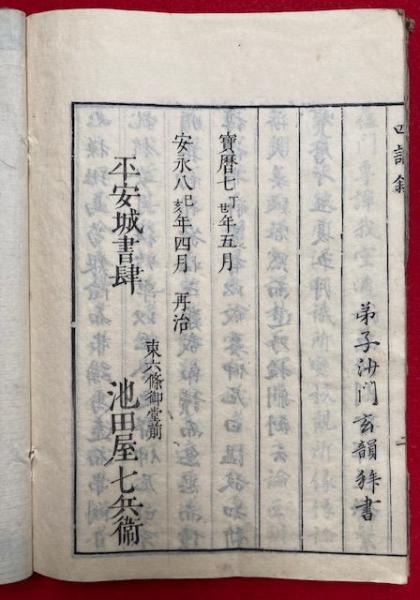 弟子沙門玄韻拜書
寶暦七丁丑年五月
安永八己亥年四月 再治
東六條御堂前
平安城書肆 池田屋七兵衛